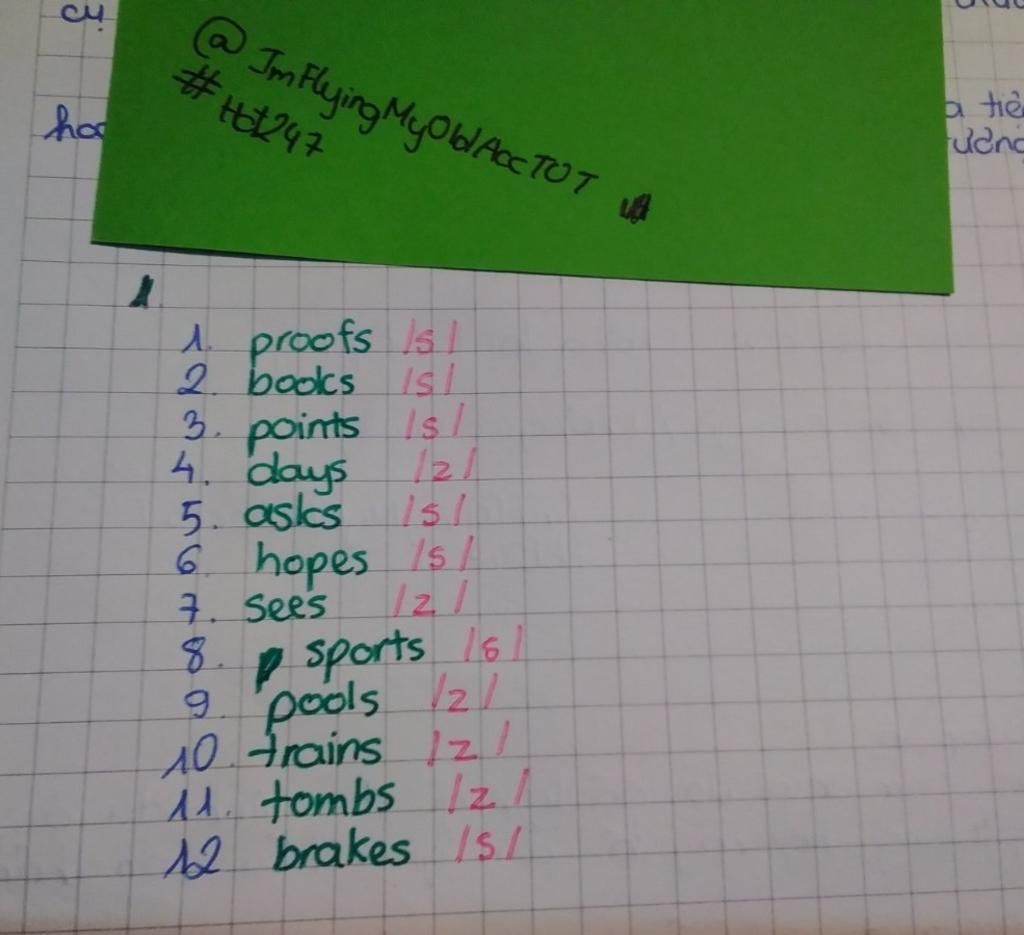 cụ
@ImFlyingMyOldAccTOT
#Hot247
a tiê
hoc
ương
1.
1. proofs /s/
2. books /s/
3. points /s/
4. days /z/
5. asks /s/
6 hopes /s/
7. sees /z/
8. sports /s/
9. pools /z/
10. trains /z/
11. tombs /z/
12 brakes /s/